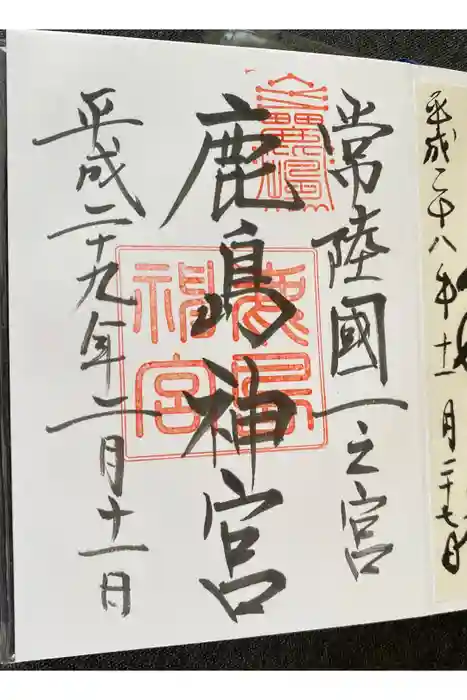 平成二十八年十一月二十七日
常陸國一之宮
鹿嶋神宮
鹿島神宮
平成二十九年二月十一日